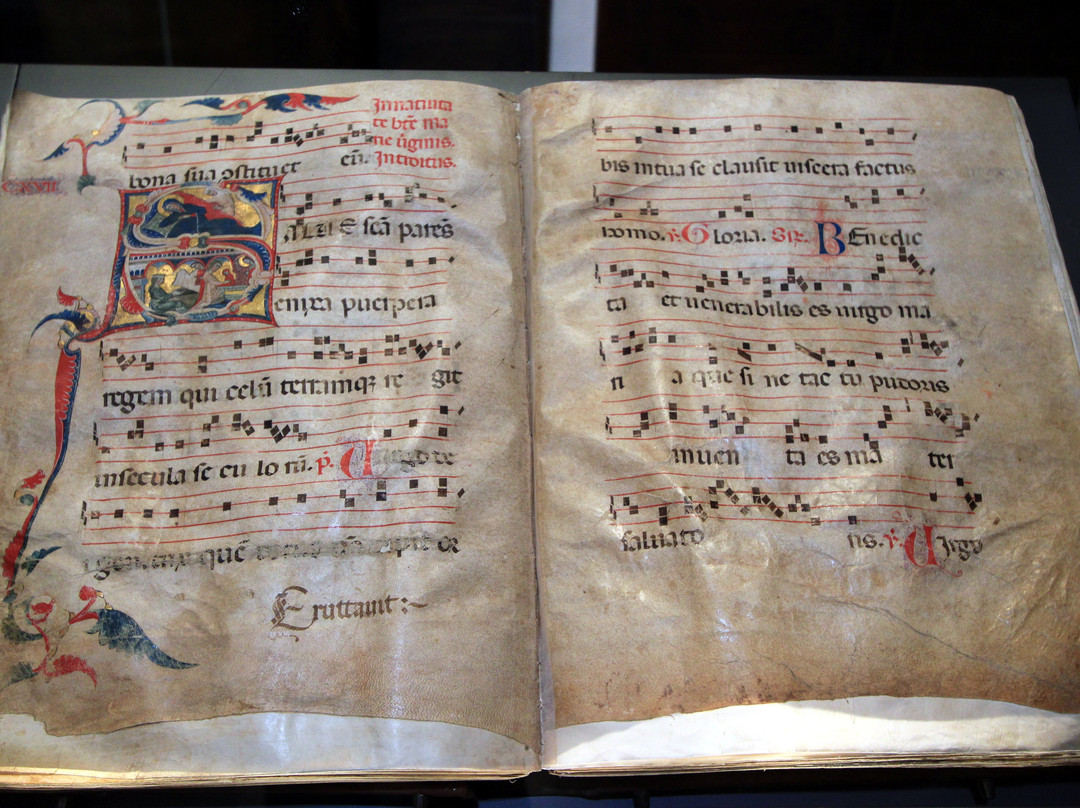 In natiuita
te bte ma
rie uginis.
Introitus.
bona sua ostituet eu.
SALUE scā parēs
enixa puerpera
regem qui celū terramqȝ re git
insecula se cu lo rū. ꝟ. Uirgo de
que
Eructauit :~
bis in tua se clausit uiscera factus
homo. ꝟ. Gloria. Gr. BEnedic
ta et uenerabilis es uirgo ma
ri a que si ne tac tu pudoris
inuen ta es ma ter
saluato ris. ꝟ. Uirgo